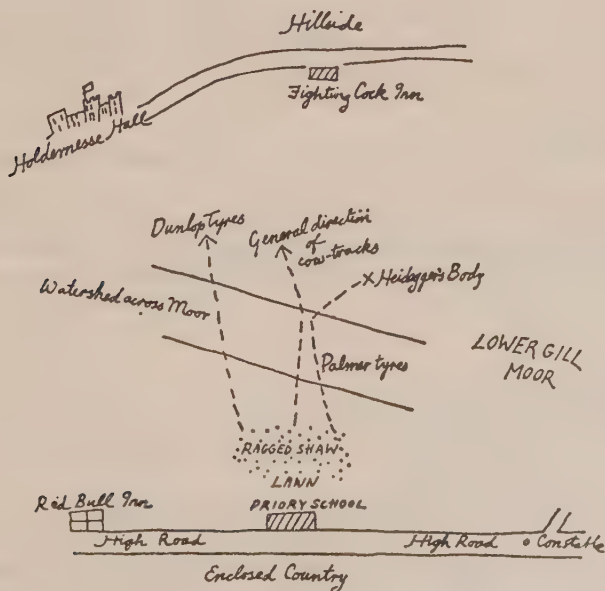 Hillside
Fighting Cock Inn
Holdernesse Hall
Dunlop Tyres
General direction
of
cow-tracks
Heidegger's Body
Watershed across Moor
LOWER GILL
MOOR
Palmer tyres
RAGGED SHAW
LAWN
Red Bull Inn
PRIORY SCHOOL
High Road
High Road
Constable
Enclosed Country